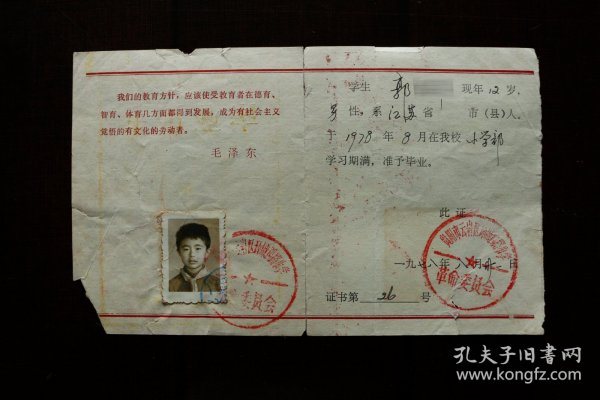 我们的教育方针，应该使受教育者在德育、
智育、体育几方面都得到发展，成为有社会主义
觉悟的有文化的劳动者。
毛泽东
学生 郭 现年12岁，
男性，系江苏省 市（县）人。
于1978年8月在我校小学部
学习期满，准予毕业。
此证
革命委员会
委员会
一九七八年八月 日
证书第 26 号
孔夫子旧书网
www.kongfz.com